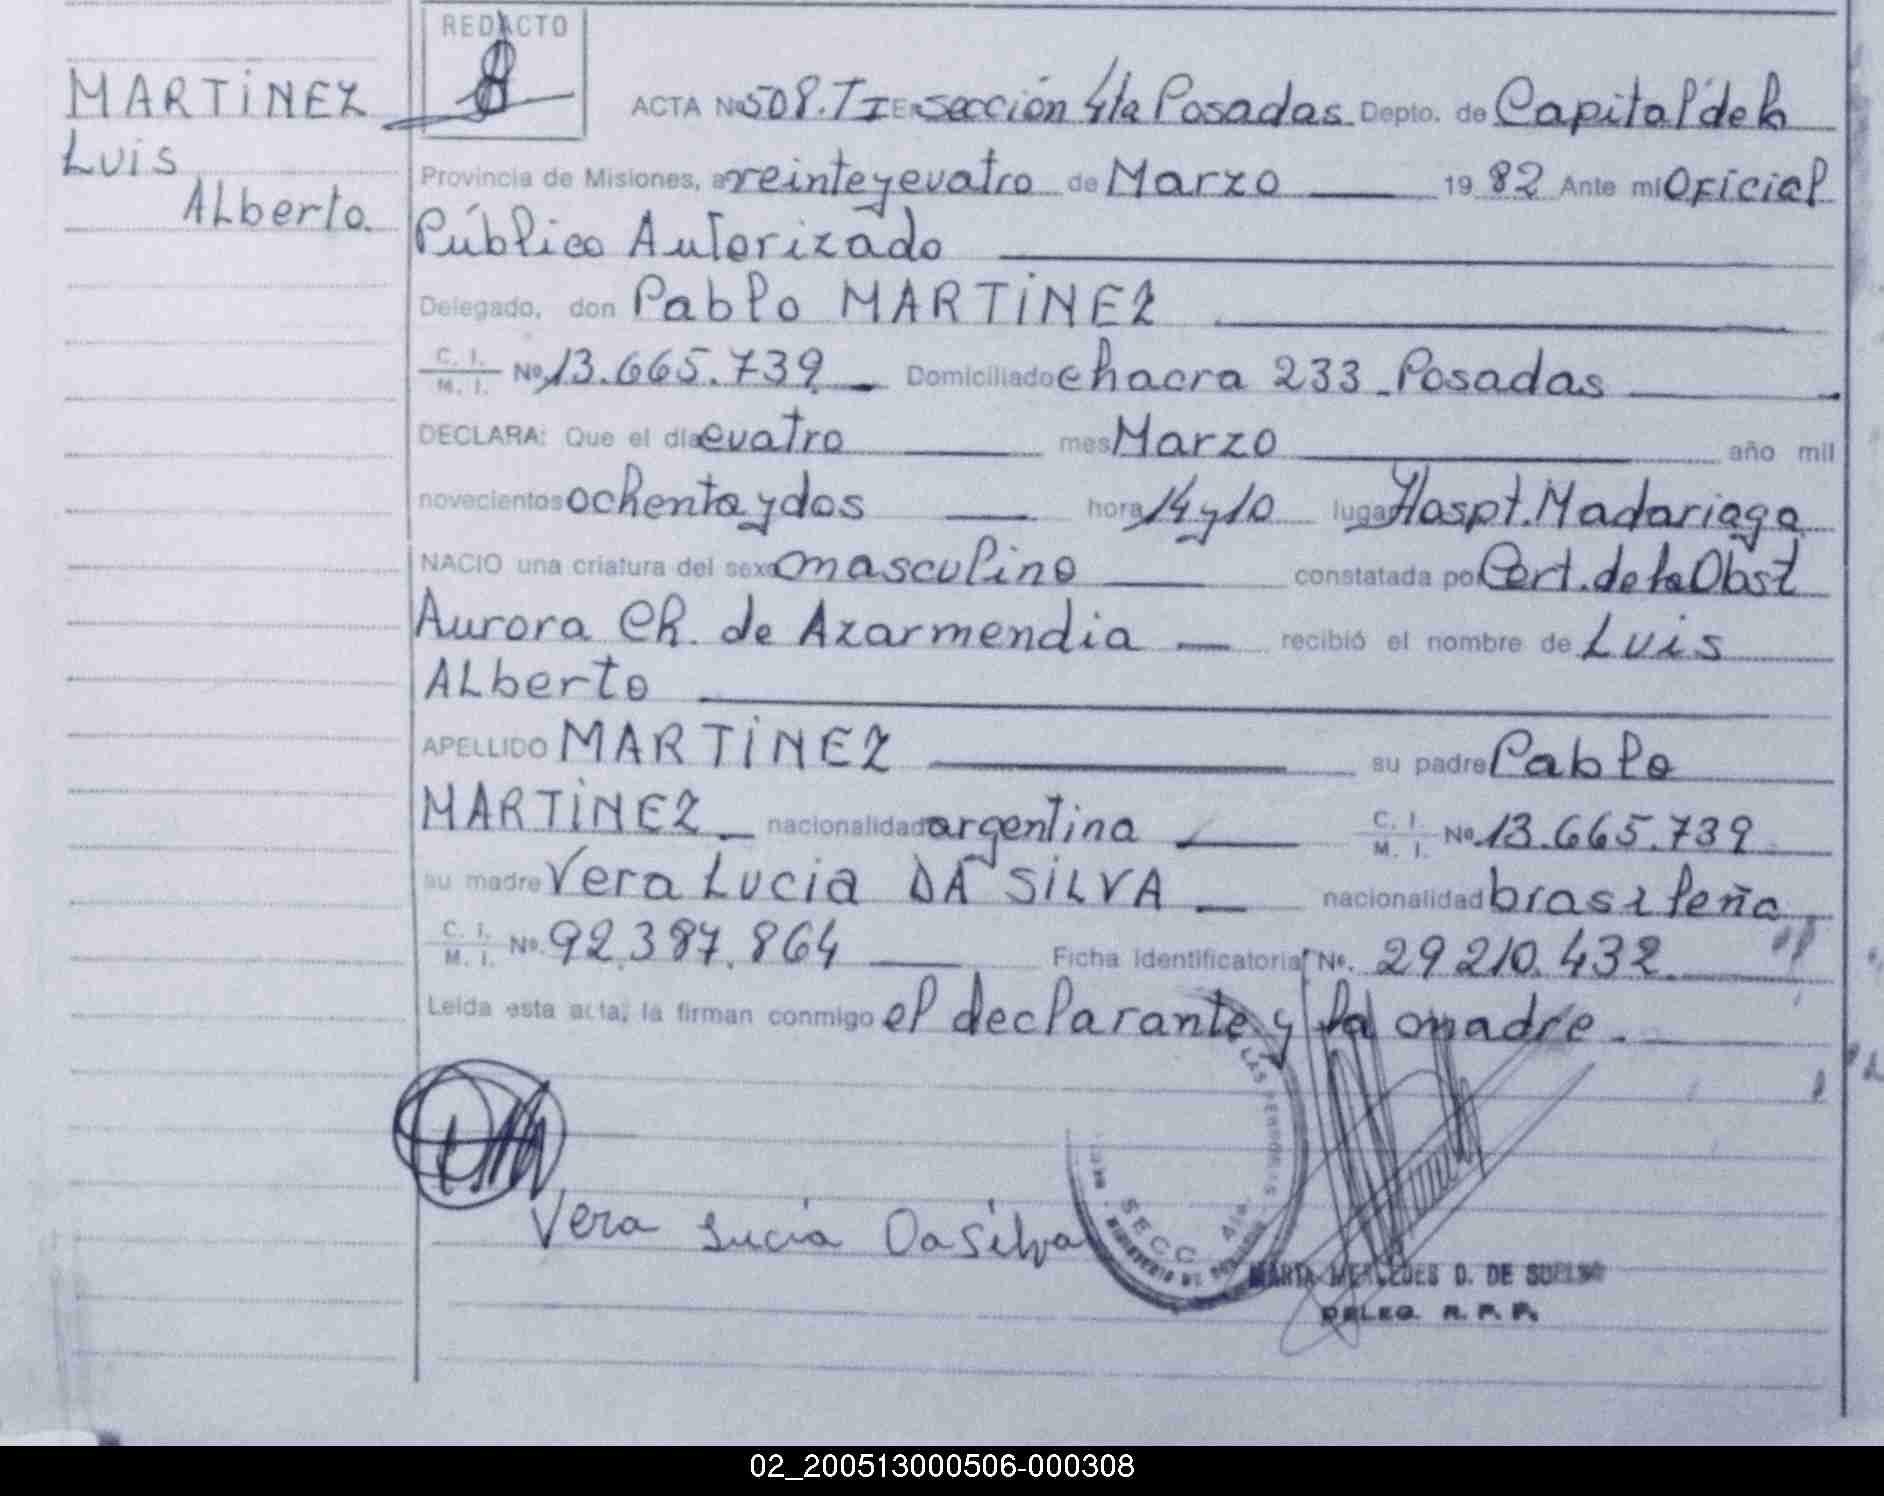 REDACTO
MARTINEZ
Luis
Alberto.
ACTA Nº 508. TI En sección 4ta Posadas Depto. de Capital de la
Provincia de Misiones, a veinteycuatro de Marzo 19 82 Ante mi Oficial
Público Autorizado
Delegado, don Pablo MARTINEZ
C. I. M. I. Nº 13.665.739 Domiciliado chacra 233 - Posadas
DECLARA: Que el día cuatro mes Marzo año mil
novecientos ochentaydos hora 14 y 10 lugar Hospt. Madariaga
NACIO una criatura del sexo masculino constatada por Cert. de la Obst
Aurora Ch. de Azarmendia recibió el nombre de Luis
Alberto
APELLIDO MARTINEZ su padre Pablo
MARTINEZ nacionalidad argentina C. I. M. I. Nº 13.665.739
su madre Vera Lucia DA SILVA nacionalidad brasileña
C. I. M. I. Nº. 92.387.864 Ficha identificatoria Nº. 29210.432
Leída esta acta, la firman conmigo el declarante y la madre.
Vera Lucia DaSilva
SECC. 4ta.
MARTA MERCEDES D. DE
DELEG. R. P. P.
02_200513000506-000308